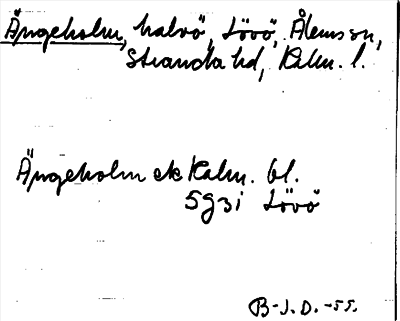 Ängeholm, halvö, Lövö, Ålems sn,
Stranda hd, Kalm. l.
Ängeholm ek Kalm. bl.
5g3i Lövö
B-J.D. -55.